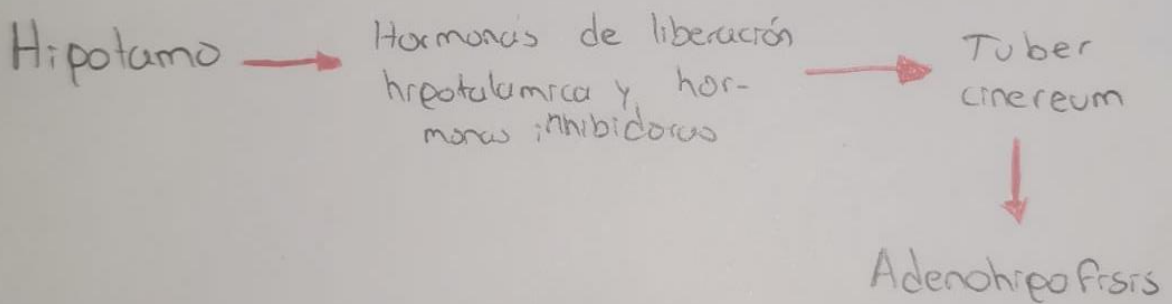 Hipotamo
Hormonas de liberación
hipotalamica y hor-
monas inhibidoras
Tuber
cinereum
Adenohipofisis